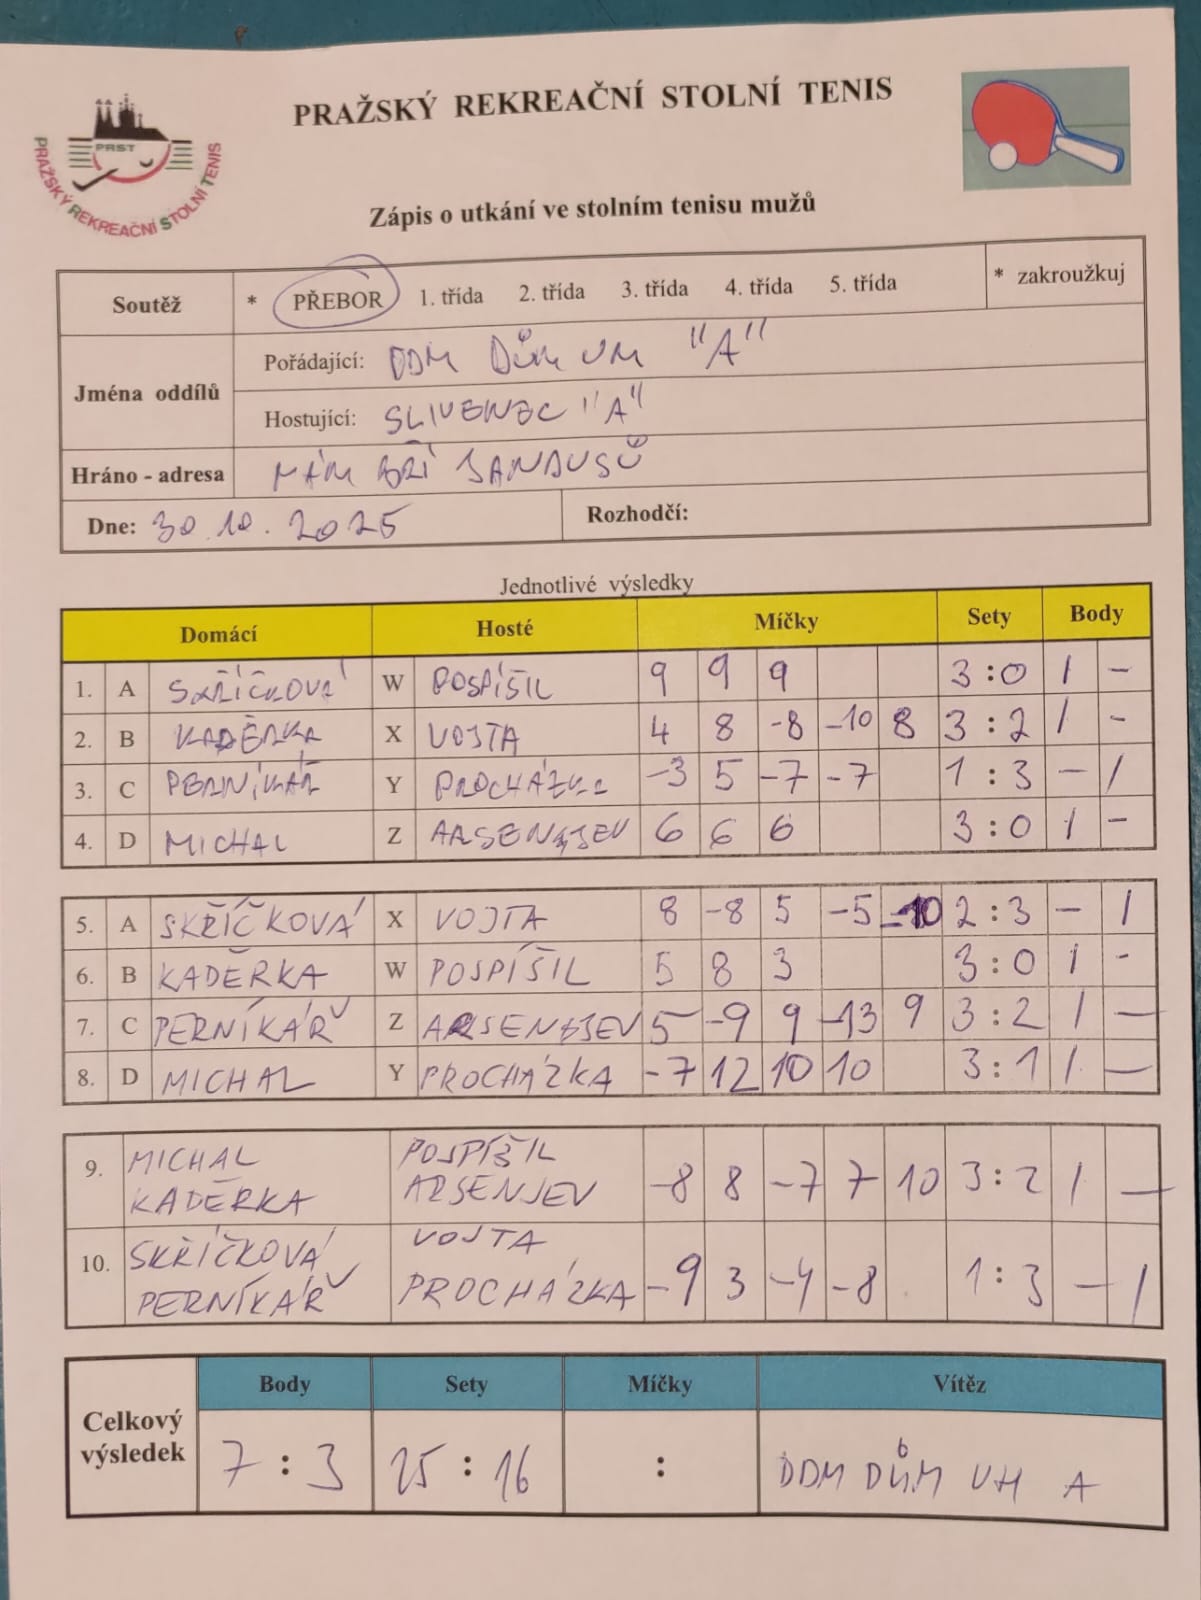 PRAŽSKÝ REKREAČNÍ STOLNÍ TENIS
PRST
PRAŽSKÝ REKREAČNÍ STOLNÍ TENIS
Zápis o utkání ve stolním tenisu mužů
Soutěž * PŘEBOR 1. třída 2. třída 3. třída 4. třída 5. třída * zakroužkuj
Jména oddílů
Pořádající: DDM DŮM UM "A"
Hostující: SLIVENEC "A"
Hráno - adresa NÁM BŘÍ JANDUSŮ
Dne: 30.10.2025 Rozhodčí:
Jednotlivé výsledky
Domácí Hosté Míčky Sety Body
1. A SKŘÍČKOVÁ W POSPÍŠIL 9 9 9 3:0 1 -
2. B KADĚRKA X VOJTA 4 8 -8 -10 8 3:2 1 -
3. C PERNÍKÁŘ Y PROCHÁZKA -3 5 -7 -7 1:3 - 1
4. D MICHAL Z ARSENJEV 6 6 6 3:0 1 -
5. A SKŘÍČKOVÁ X VOJTA 8 -8 5 -5 -10 2:3 - 1
6. B KADĚRKA W POSPÍŠIL 5 8 3 3:0 1 -
7. C PERNÍKÁŘ Z ARSENJEV 5 -9 9 -13 9 3:2 1 -
8. D MICHAL Y PROCHÁZKA -7 12 10 10 3:1 1 -
9. MICHAL POSPÍŠIL
KADĚRKA ARSENJEV -8 8 -7 7 10 3:2 1 -
10. SKŘÍČKOVÁ VOJTA
PERNÍKÁŘ PROCHÁZKA -9 3 -4 -8 1:3 - 1
Body Sety Míčky Vítěz
Celkový výsledek 7:3 25:16 : DDM DŮM UM A